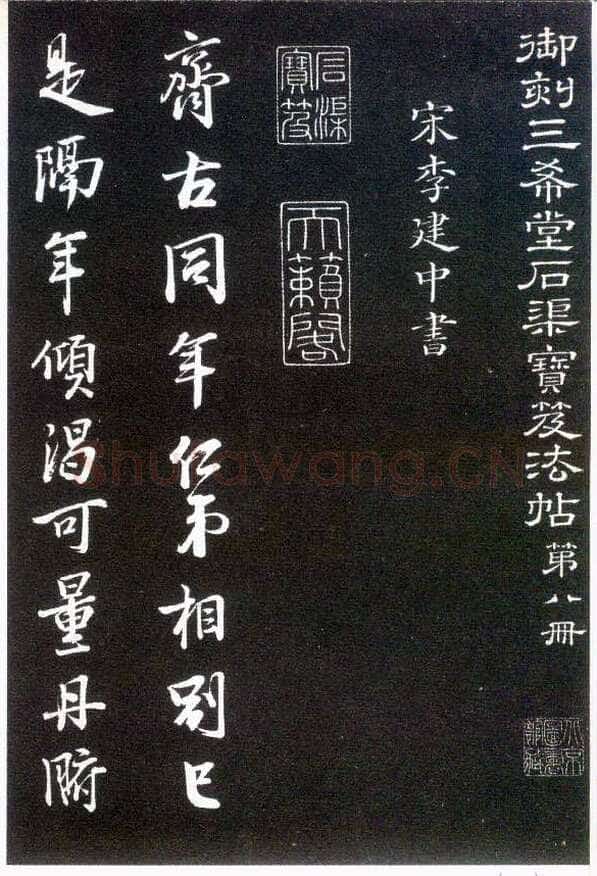 御刻三希堂石渠寶笈法帖第八冊
宋李建中書
石渠寶笈
天籟閣
齊古同年仁弟相別已
是隔年傾渴可量丹腑
shufawang.CN